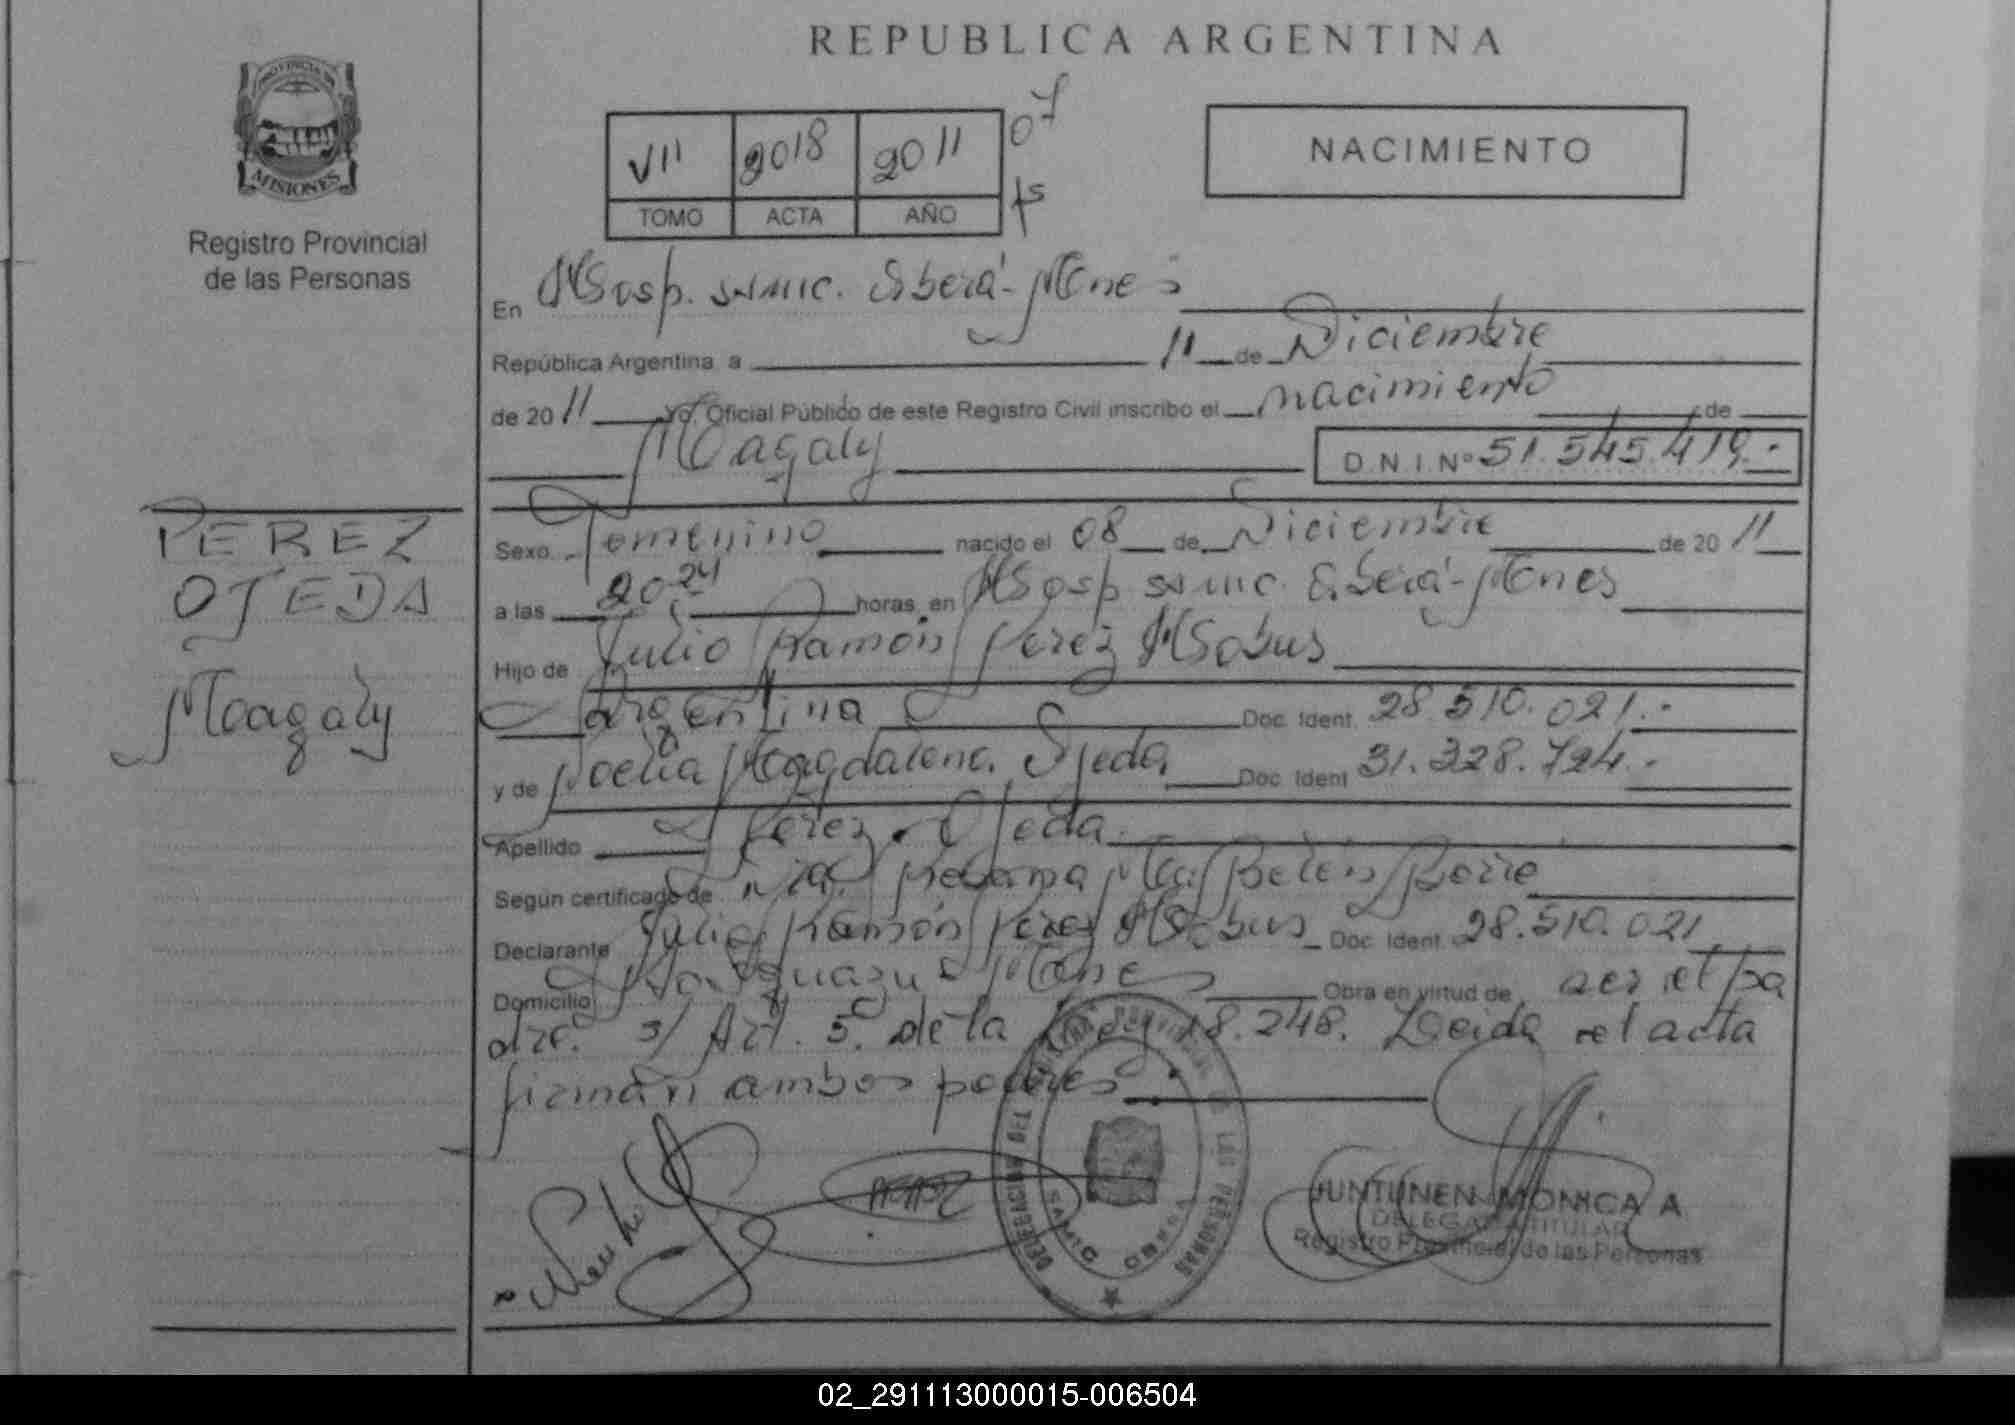 REPUBLICA ARGENTINA
PROVINCIA DE
MISIONES
Registro Provincial
de las Personas
VII 2018 2011 07
TOMO ACTA AÑO
NACIMIENTO
En Hosp. SAMIC. Oberá-Mnes
República Argentina a 11 de Diciembre
de 20 11 Yo, Oficial Público de este Registro Civil inscribo el nacimiento de
Magaly D.N.I. Nº 51.545.419.-
PEREZ
OJEDA
Magaly
Sexo Femenino nacido el 08 de Diciembre de 20 11
a las 20.24 horas, en Hosp SAMIC. Oberá-Mnes
Hijo de Julio Ramón Perez Mobus
Argentina Doc. Ident. 28.510.021.-
y de Noelia Magdalena Ojeda Doc. Ident 31.328.724.-
Apellido Perez Ojeda
Según certificado de Dra. Ma Belén
Declarante Julio Ramón Perez Mobus Doc. Ident. 28.510.021
Domicilio Mnes Obra en virtud de ser el pa
dre. s/ Art. 5º de la Ley 18.248. Leida el acta
firman ambos padres
DELEGACION DEL REGISTRO PROVINCIAL DE LAS PERSONAS
SAMIC OBERA
JUNTUNEN MONICA A
DELEGADA TITULAR
Registro Provincial de las Personas
02_291113000015-006504